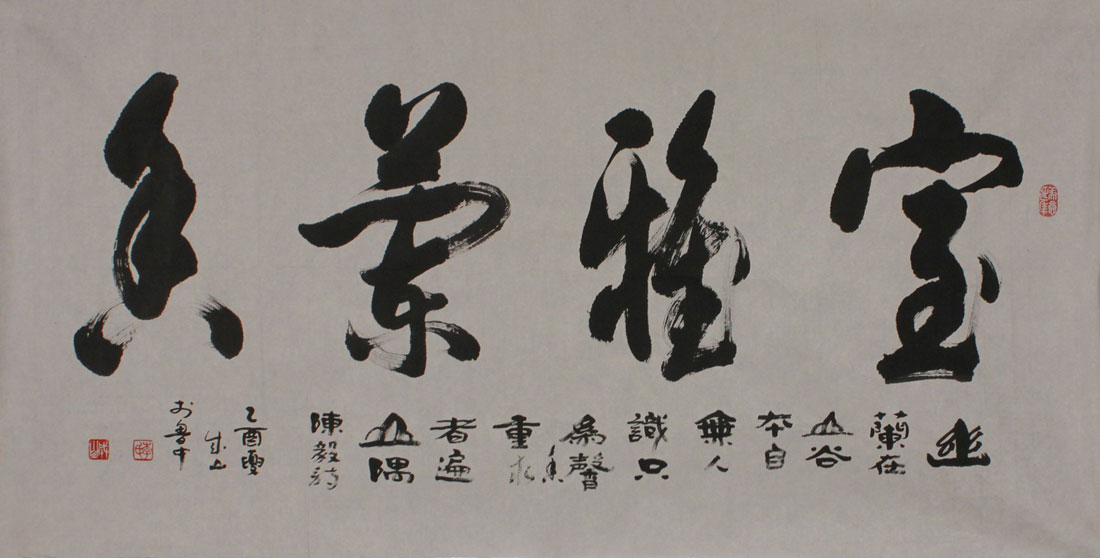 室雅蘭香
幽
蘭在
山谷
本自
無人
識只
為馨
香
重求
者遍
山隅
陳毅詩
乙酉
成山
於魯中